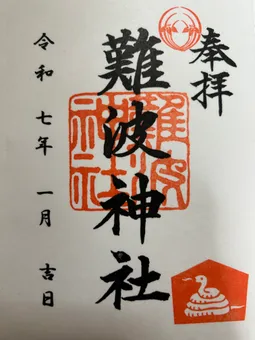 奉拝
難波神社
難波
神社
令和七年一月吉日